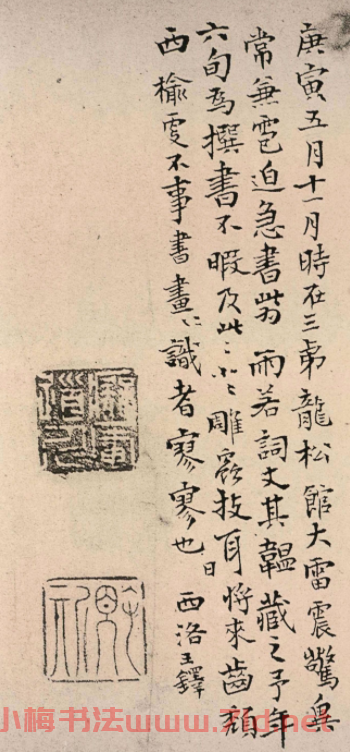 庚寅五月十一月時在三弟龍松館大雷震驚異
常兼雹迫急書此 而若詞丈其韞藏之予年
六旬爲撰書不暇及此〻小〻雕蟲技耳將來齒頹
西榆更不事書畫〻識者寥寥也 西洛王鐸
小梅书法www.7id.net